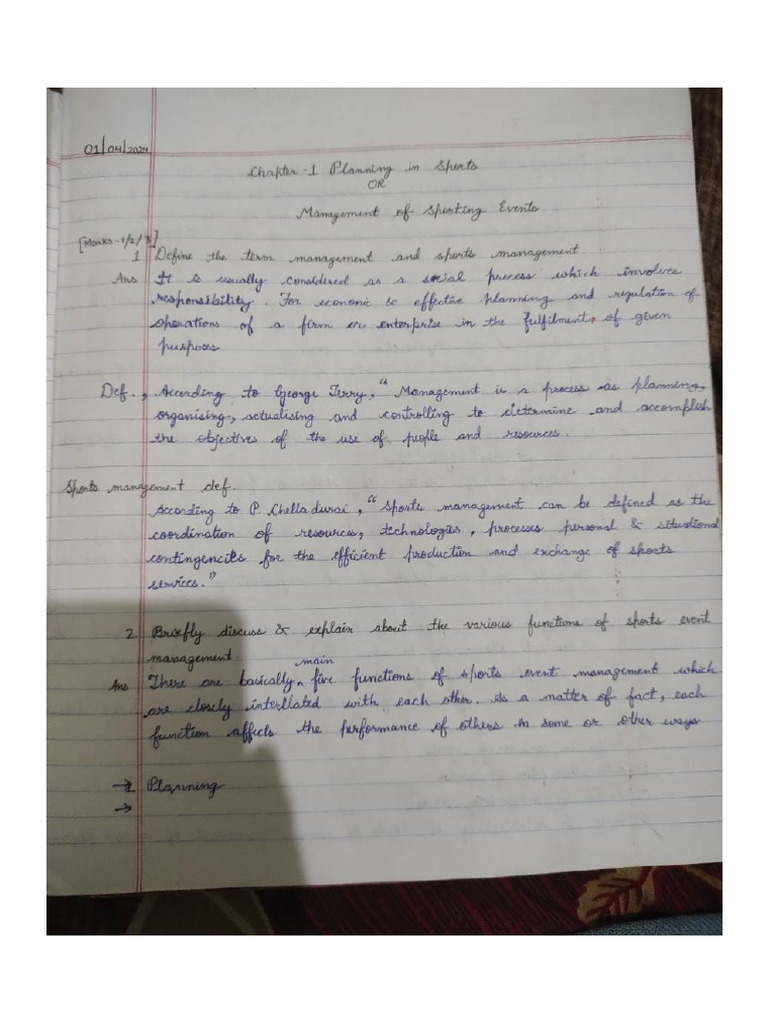 01/04/2024
Chapter-1 Planning in Sports
OR
Management of Sporting Events
[Marks-1/2/3]
1 Define the term management and sports management.
Ans It is usually considered as a social process which involves
responsibility. For economic & effective planning and regulation of
operations of a firm or enterprise in the fulfilment, of given
purposes
Def., According to George Terry, "Management is a process as planning,
organising, actualising and controlling to determine and accomplish
the objectives of the use of people and resources.
Sports management def.
According to P. Chelladurai, "Sports management can be defined as the
coordination of resources, technologies, processes personal & situational
contingencies for the efficient production and exchange of sports
services."
2. Briefly discuss & explain about the various functions of sports event
management
Ans There are basically main five functions of sports event management which
are closely interllated with each other. As a matter of fact, each
function affects the performance of others in some or other ways.
→ 1 Planning
→